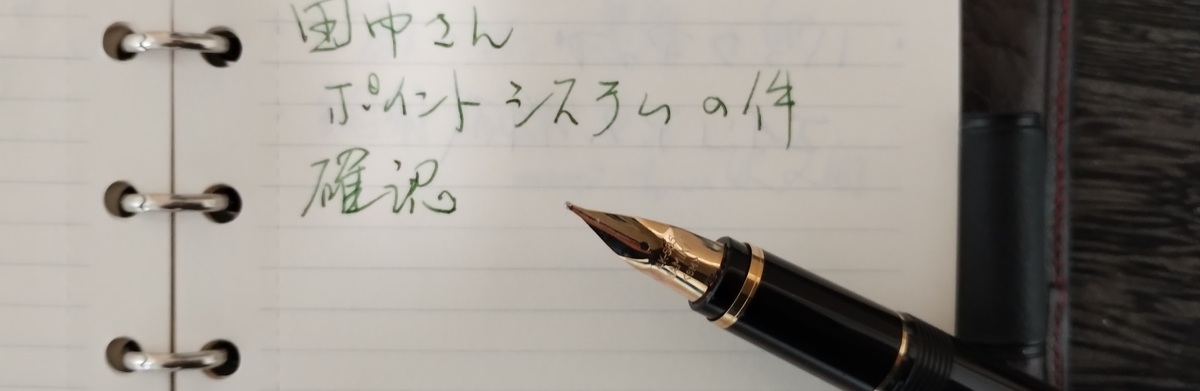 田中さん
ポイントシステムの件
確認